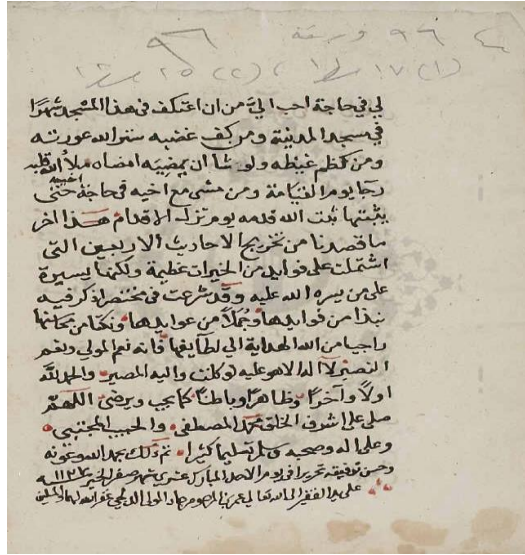 ٩٦ ورقة ٩٦
(١) ١٧ سطرا ، (٢) ٢٥ سطرا
لي في حاجة احب اليّ من ان اعتكف في هذا المسجد شهرًا
في مسجد المدينة ومن كف غضبه ستر الله عورته
ومن كظم غيظه ولو شا ان يمضيه امضاه ملأ الله قلبه
رجا يوم القيامة ومن مشى مع اخيه في حاجة حتى
يثبتها ثبت الله قدمه يوم تزل الاقدام هذا اخر
ما قصدنا من تخريج الاحاديث الاربعين التي
اشتملت على فوايد من الخيرات عظيمة ولكنها يسيرة
على من يسره الله عليه وقد شرعت في مختصر اذكر فيه
نبذا من فوايدها وجملاً من عوايدها ونكتا من محاسنها
راجيا من الله الهداية الى لطايفها فانه نعم المولي ونعم
النصير لا اله الا هو عليه توكلت واليه المصير والحمد لله
اولاً وآخراً وظاهراً وباطناً كما يحب ويرضى اللهم
صلي على اشرف الخلق محمد المصطفي والحبيب المجتبي
وعلى اله وصحبه وسلم تسليما كثيرا تم ذلك بحمد الله وعونه
وحسن توفيقه تحريرا في يوم الاحد المبارك شهر صفر الخير ١١٣٧
على يد الفقير الى الله تعالى غفر الله لهما وللمسلمين